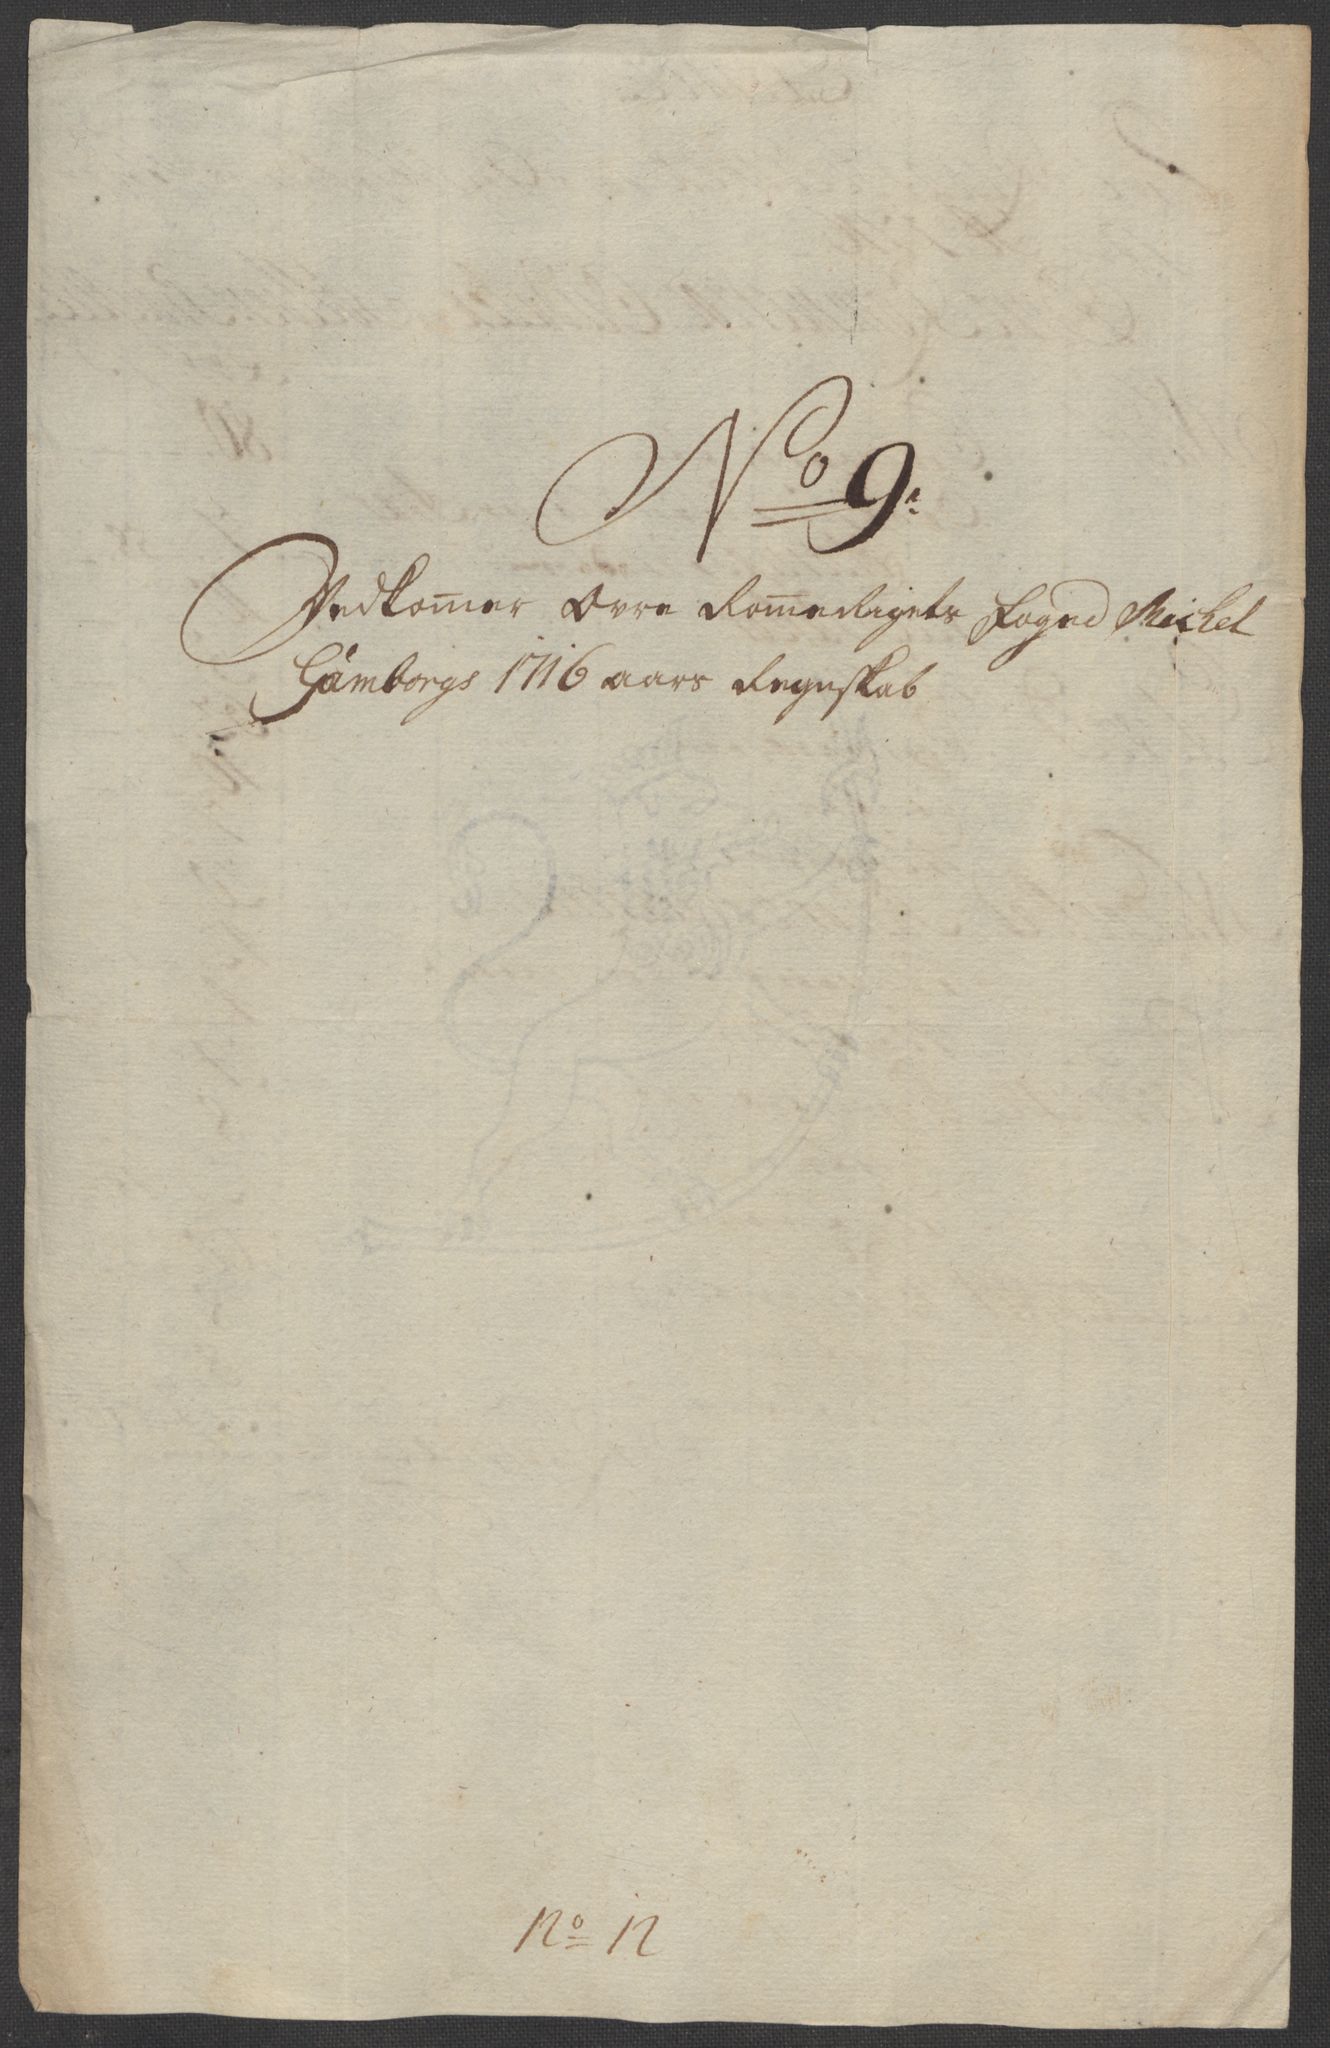 No 9:
Vedkom̅er Øvre Rom̅erigets Foged Michel
Hämborgs 1716 aars Regnskab
No 12